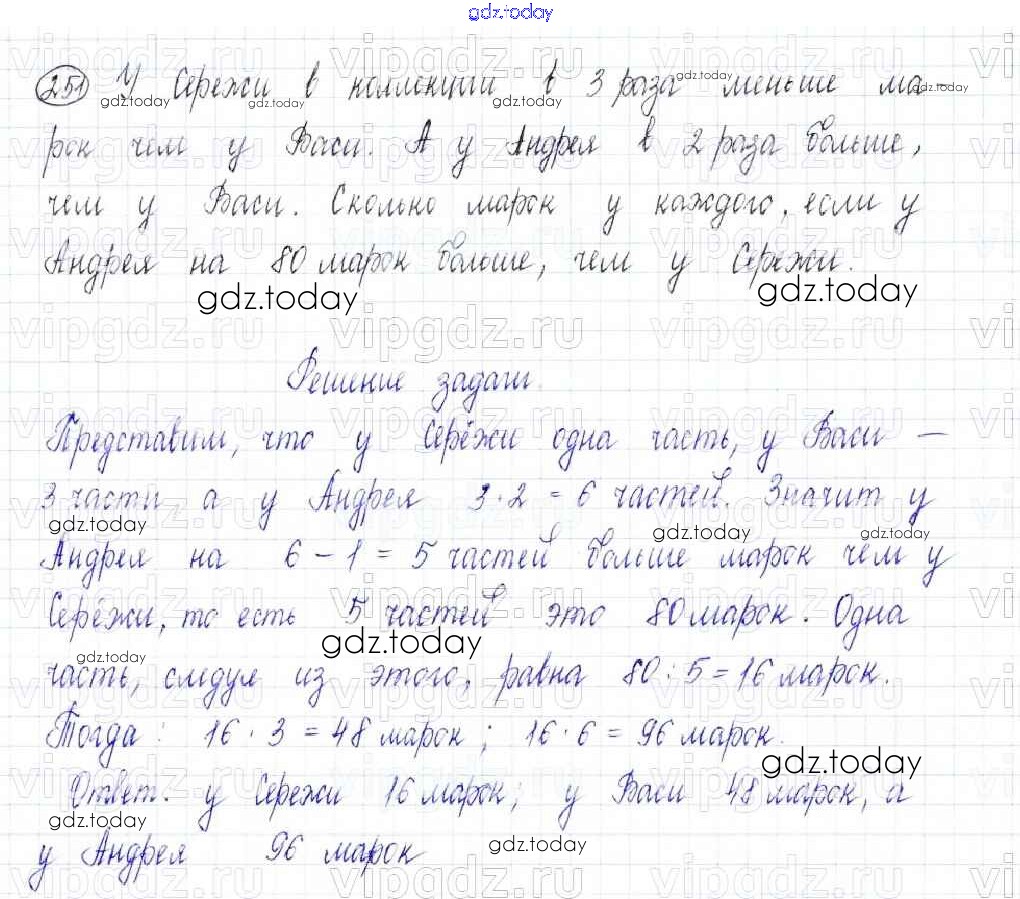 gdz.today
251 У Сережи в коллекции в 3 раза меньше ма-
рок чем у Васи. А у Андрея в 2 раза больше,
чем у Васи. Сколько марок у каждого, если у
Андрея на 80 марок больше, чем у Сережи.
gdz.today gdz.today
Решение задачи.
Представим, что у Серёжи одна часть, у Васи —
3 части а у Андрея 3·2 = 6 частей. Значит у
Андрея на 6 - 1 = 5 частей больше марок чем у
Серёжи, то есть 5 частей это 80 марок. Одна
gdz.today
часть, следуя из этого, равна 80 : 5 = 16 марок.
Тогда : 16 · 3 = 48 марок ; 16 · 6 = 96 марок.
gdz.today
Ответ. у Сережи 16 марок; у Васи 48 марок, а
у Андрея 96 марок
gdz.today
vipgdz.ru